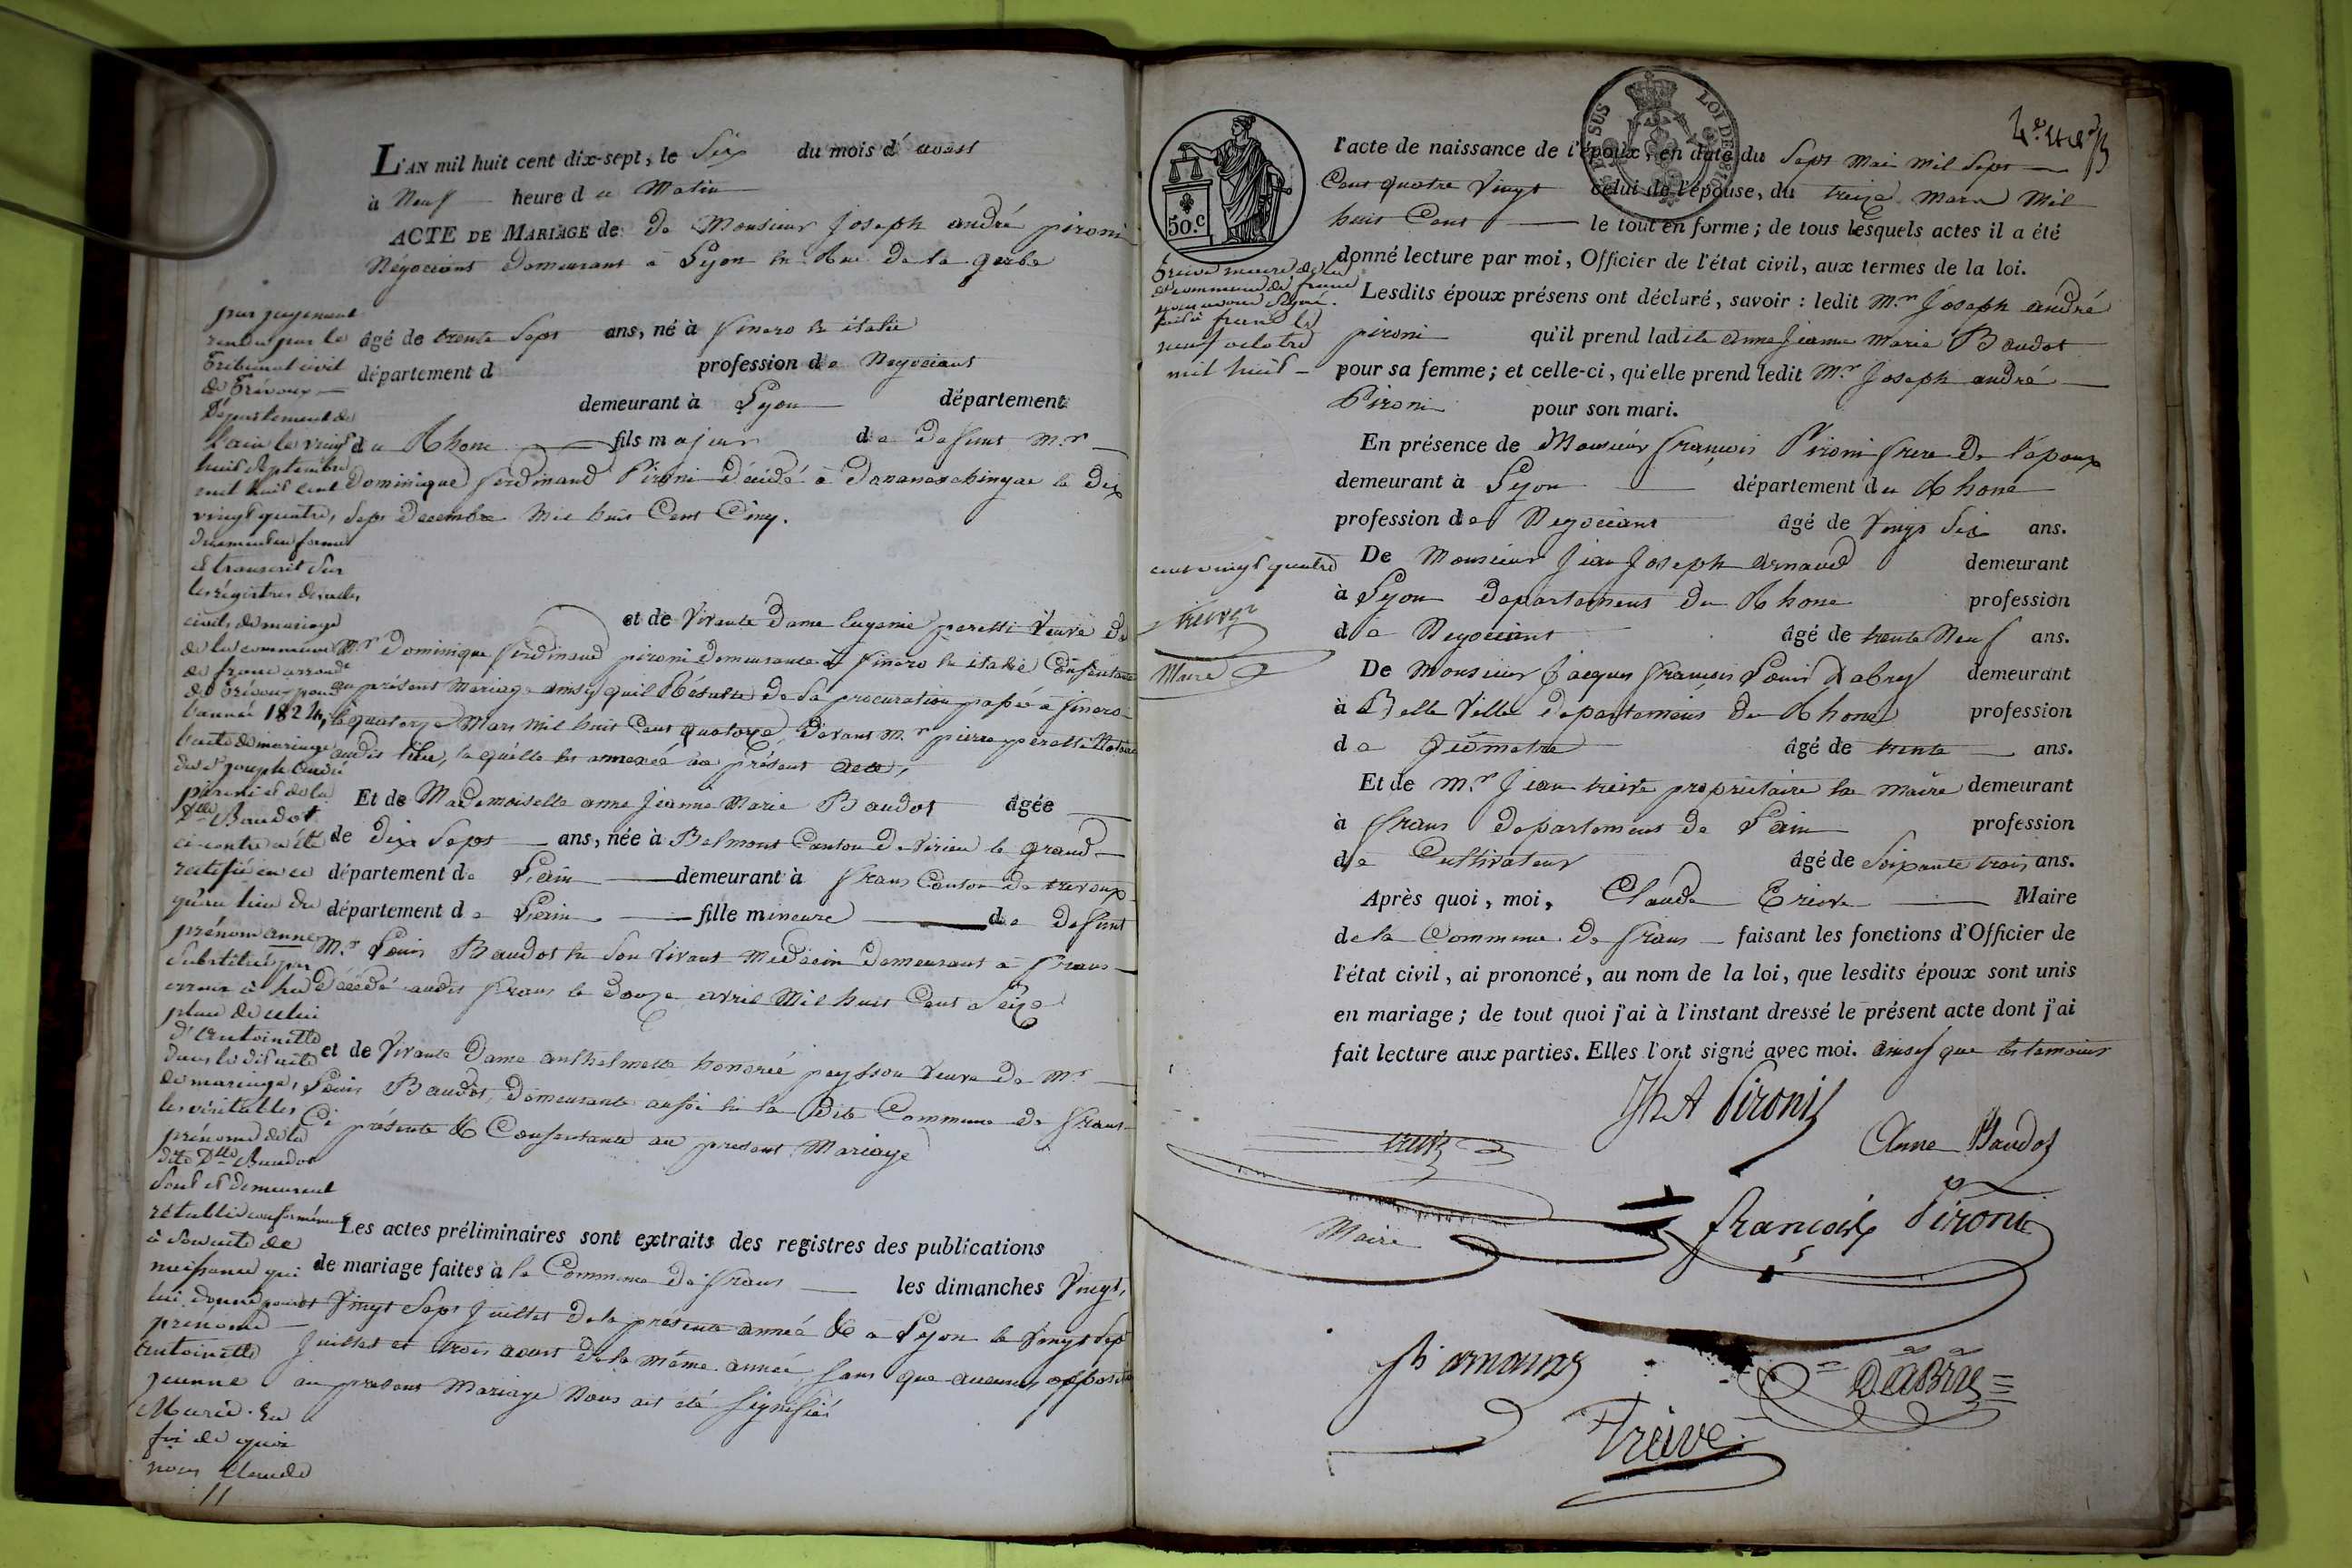 L'AN mil huit cent dix-sept, le Six du mois d' aoust
à Neuf heure du Matin
ACTE DE MARIAGE de de Monsieur Joseph andré pironi
Négociant demeurant à Lyon Rue De la gerbe
âgé de trente Sept ans, né à finero en italie
département d profession de Negociant
demeurant à Lyon département
du Rhone fils majeur de defunt M.r
Dominique ferdinand Pironi décédé à le dix
Sept Decembre Mil huit Cent Cinq.
et de Vivante Dame Eugenie peretti Veuve De
M.r Dominique ferdinand pironi demeurante à finero en italie Consentante
au présent Mariage ainsy quil Résulte de Sa procuration passée à finero
le quatorze Mars Mil huit Cent quatorze devant M.r pierre peretti Notaire
audit lieu, la quelle est annexée au présent acte,
Et de Mademoiselle anne Jeanne Marie Baudot âgée
de dix Sept ans, née à Belmont Canton De Virieu le grand
département de L'ain demeurant à frans Canton de trevoux
département de L'ain fille mineure de defunt
M.r Louis Baudot en Son Vivant Medecin demeurant à frans
décédé audit frans le douze avril Mil huit Cent Seize
et de Vivante Dame anthelmette honorée peysson Veuve De M.r
Louis Baudot, demeurante aussi en la Dite Commune de frans
Ci présente & Consentante au present Mariage
Les actes préliminaires sont extraits des registres des publications
de mariage faites à la Commune De frans les dimanches Vingt,
et Vingt Sept Juillet De la présente année & a Lyon le Vingt Sept
Juillet et trois aoust De la même année, Sans que aucunes opposition
au présent Mariage Nous ait été Signifiée
par jugement
rendu par le
tribunal civil
de Trévoux
Département de
l'ain le vingt
huit Septembre
mil huit cent
vingt quatre,
duement en forme
et transcrit Sur
les régistres des actes
civils de mariage
de la commune
de frans arrond.t
de Trévoux pour
l'année 1824,
l'acte de mariage
du S.r Joseph André
pironi et de la
D.lle Baudot
ci-contre a été
rectifié en ce
qu'au lieu du
prénom anne
Substitué par
erreur à la
place de celui
d'Antoinette
dans le dit acte
de mariage,
les véritables
prénoms de la
dite D.lle Baudot
Sont et demeurent
rétablis conformément
à Son acte de
naissance qui
lui donne pour
prénoms
Antoinette
Jeanne
Marie. En
foi de quoi
nous Claude
l'acte de naissance de l'époux, en date du Sept Mai Mil Sept
Cent quatre Vingt celui de l'épouse, du treize Mars Mil
huit Cent le tout en forme; de tous lesquels actes il a été
donné lecture par moi, Officier de l'état civil, aux termes de la loi.
Lesdits époux présens ont déclaré, savoir : ledit M.r Joseph andré
pironi qu'il prend ladite anne Jeanne Marie Baudot
pour sa femme; et celle-ci, qu'elle prend ledit M.r Joseph andré
Pironi pour son mari.
En présence de Monsieur françois Pironi frere De l'époux
demeurant à Lyon département du Rhone
profession de Negociant âgé de Vingt Six ans.
De Monsieur Jean Joseph arnaud demeurant
à Lyon Departement Du Rhone profession
de Negociant âgé de trente Neuf ans.
De Monsieur Jacques françois Louis Dabry demeurant
à Belle Ville departement Du Rhone profession
de Géometre âgé de trente ans.
Et de M.r Jean treive propriétaire demeurant
à frans Departement de L'ain profession
de Cultivateur âgé de Soixante trois ans.
Après quoi, moi, Claude Treive Maire
de la Commune de frans faisant les fonctions d'Officier de
l'état civil, ai prononcé, au nom de la loi, que lesdits époux sont unis
en mariage; de tout quoi j'ai à l'instant dressé le présent acte dont j'ai
fait lecture aux parties. Elles l'ont signé avec moi. ainsy que les temoins
50.c
LOI DE 1816
Treive maire de la
d.e commune de frans
avons Signé.
fait à frans le
neuf octobre
mil huit
cent vingt quatre
Treive
Maire
Jh A Pironi
Anne Baudot
treive
Maire
françois Pironi
Jh arnaud
DABRY
Treive